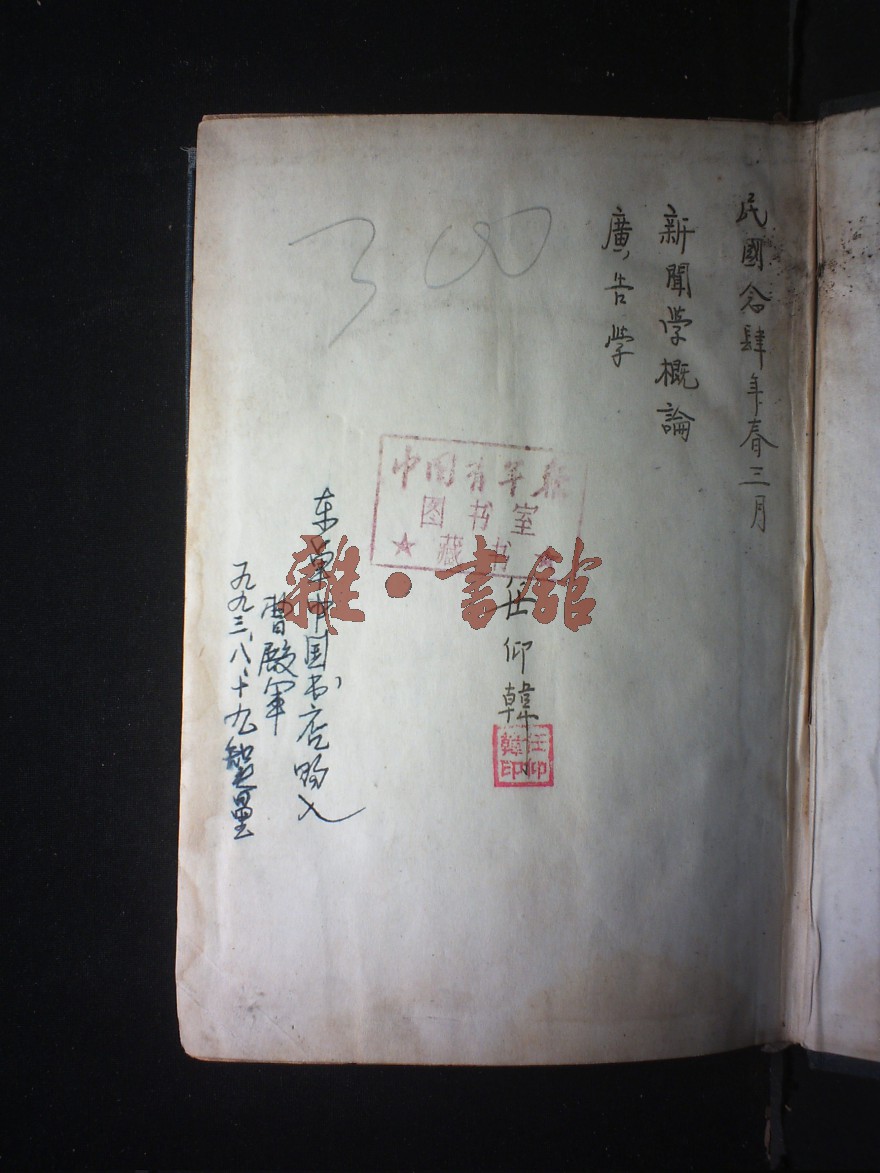 民國念肆年春三月
新聞学概論
廣告学
300
中国青年报
图书室
★藏书★
任仰韓
任仰韓印
东单中国书店购入
曹殿军
一九九三、八、十九
雜·書館